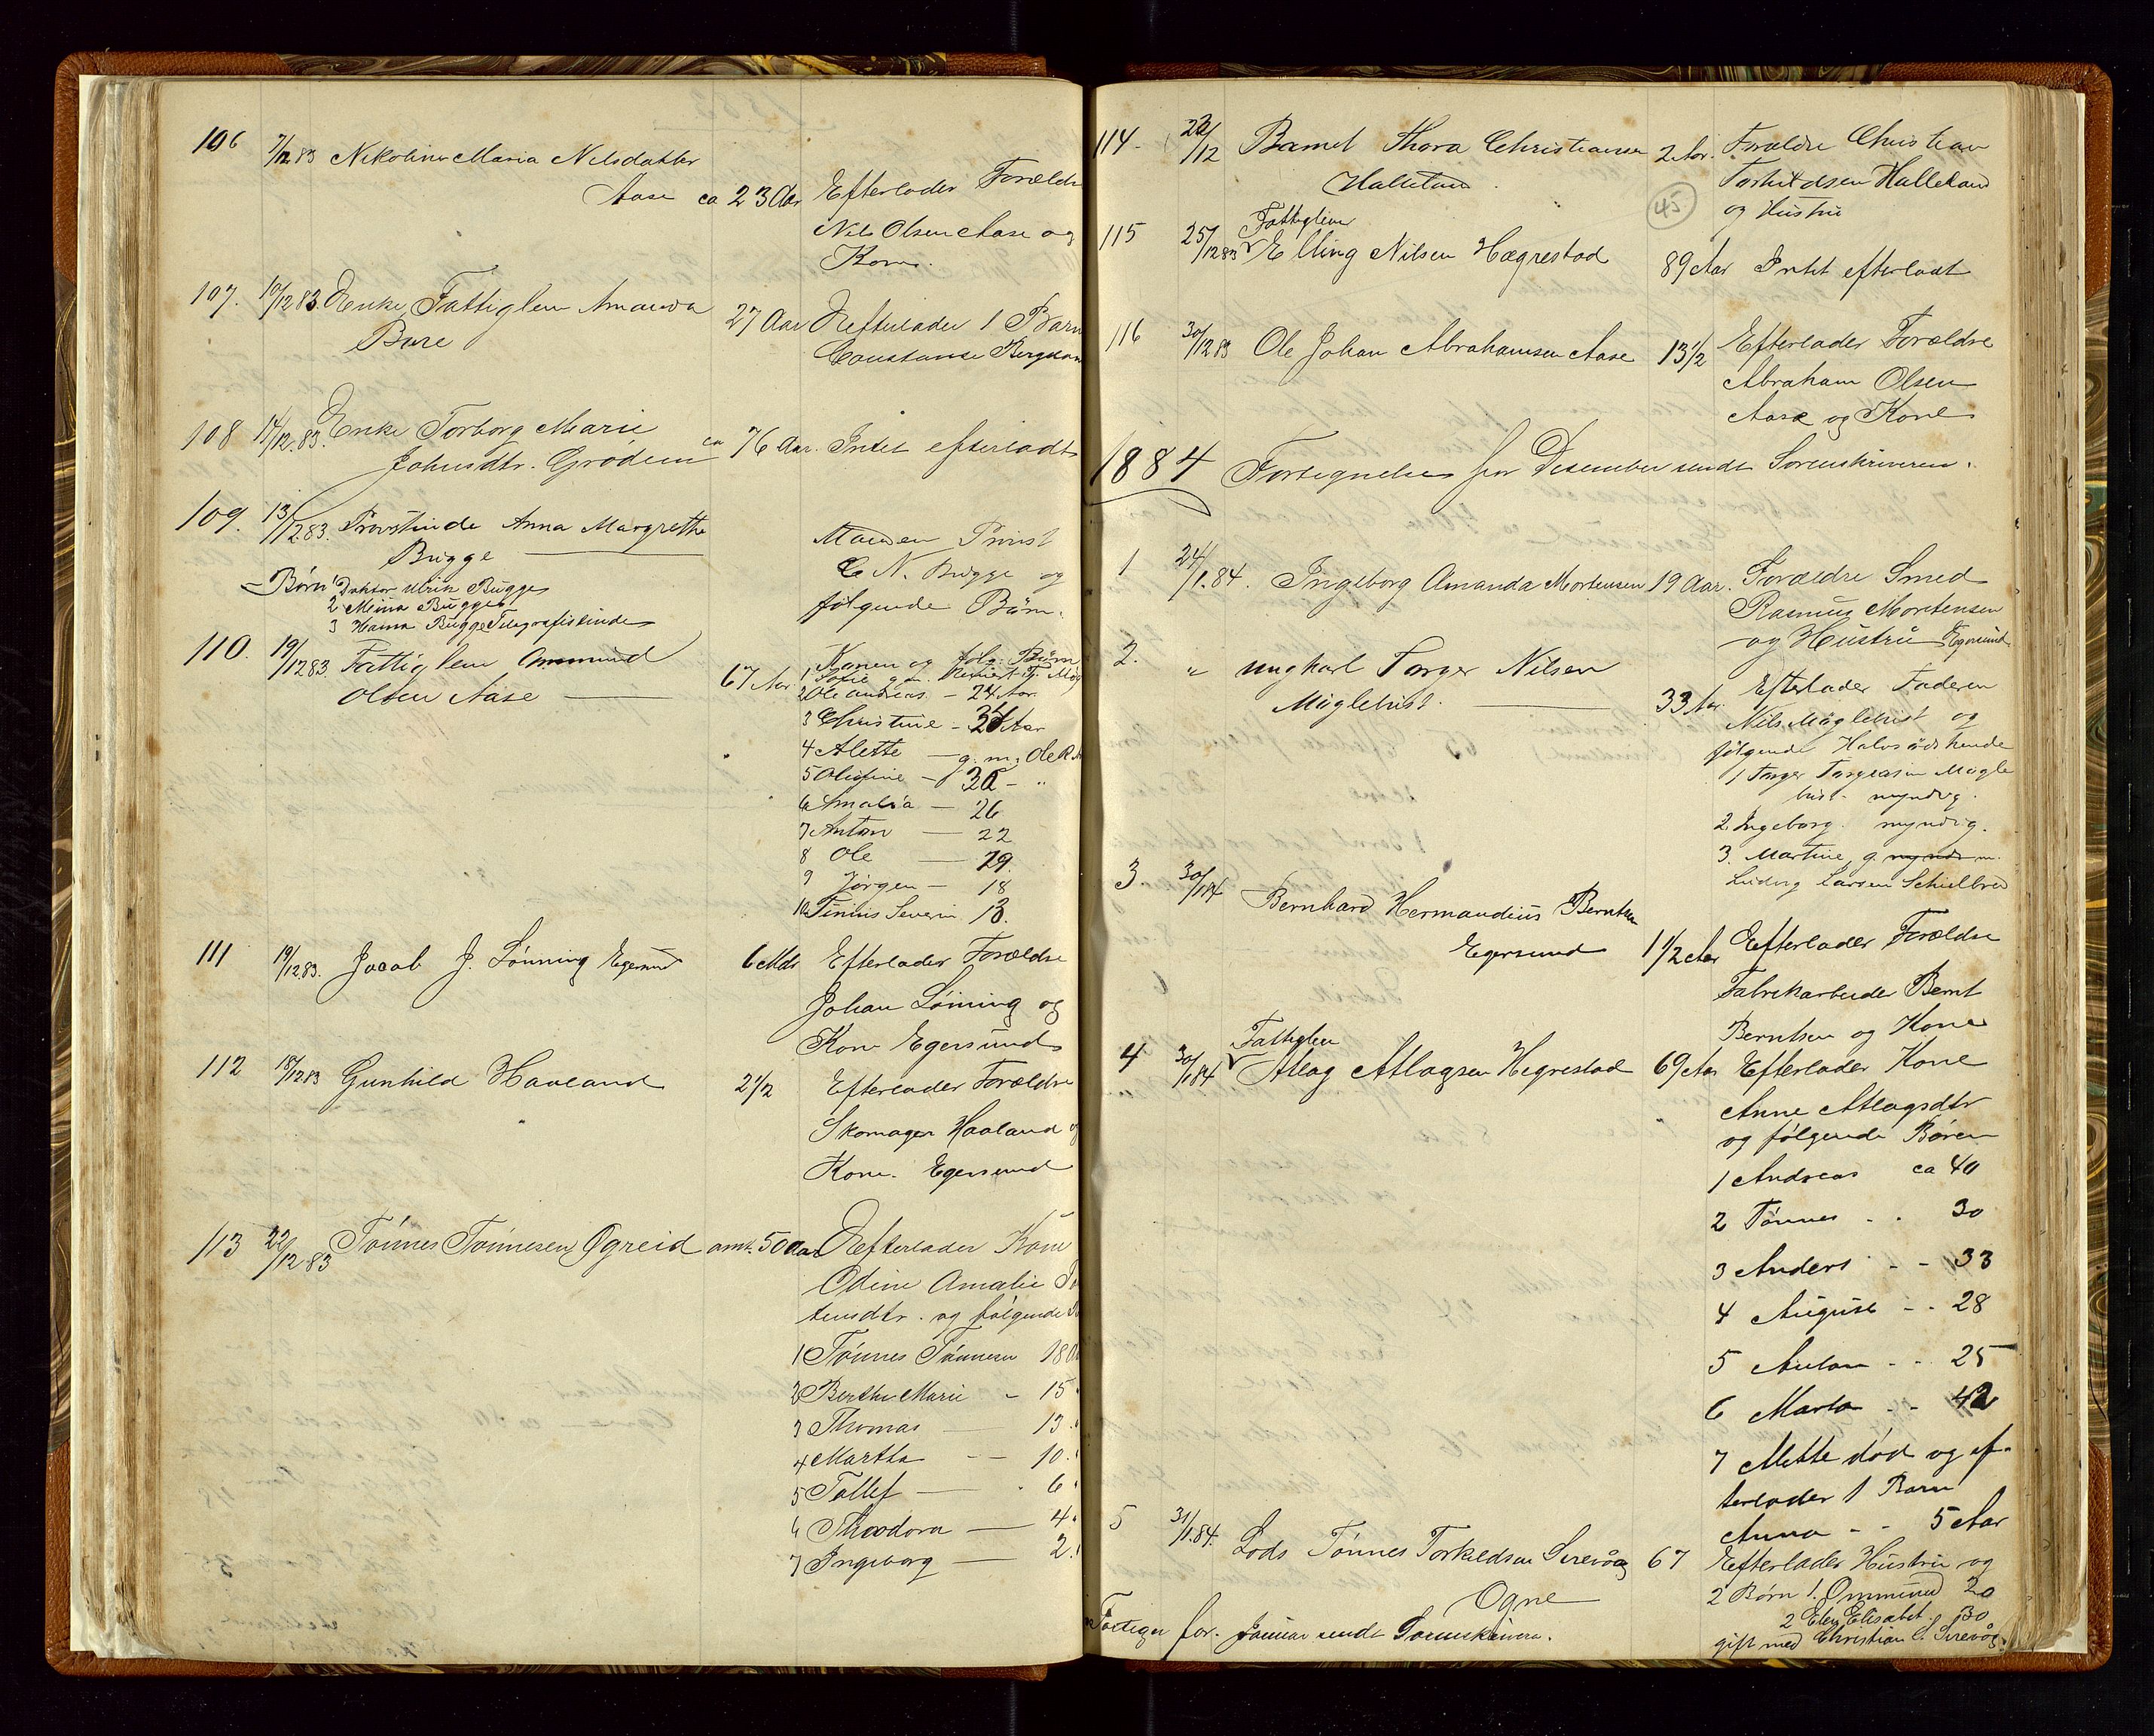 106 7/12 83 Nikoline Maria Nilsdatter
Aase ca 23 Aar Efterlader Forældre
Nils Olsen Aase og
Kone.
107. 10/12 83 Enke Fattiglem Amanda
Bure 27 Aar Efterlader 1 Barn
Constanse
108 11/12 83. Enke Torborg Marie
Johnsdtr. Grødem ca 76 Aar. Intet efterladt
109. 13/12 83. Provstinde Anna Margrethe
Bugge
Manden Provst
C N. Bugge og
følgende Børn.
Børn 1 Doktor Ulrik Bugge
2 Mina Bugge
3 Hanna Bugge Telegrafistinde
110. 19/12 83. Fattiglem Ommund
Olsen Aase 67 Aar.
Konen og følg. Børn
1 Sofie g. m.
2 Ole Andreas - 24 Aar
3 Christine - 34 Aar
4 Alette - g. m. Ole R
5 Olufine - 30 - "
6 Amalia - 26
7 Anton - 22
8 Ole - 19.
9 Jörgen - 18
10 Tinius Severin 13.
111 19/12 83. Jacob J. Lönning Egersund 6 Mdr Efterlader Forældre
Johan Löning og
Kone Egersund
112 18/12 83 Gunhild Haaland 2 1/2 Efterlader Forældre
Skomager Haaland og
Kone. Egersund
113 22/12 83 Tönnes Tönnesen Ögreid omt. 50 Aar Efterlader Kone
Odine Amalie
tensdtr. og følgende
1 Tönnes Tönnesen 18 Aa
2 Berthe Marie - 15
3 Thomas - 13
4 Martha - - 10
5 Tollef - 6
6 Theodora - 4
7 Ingeborg - 2
114. 22/12 Barnet Thora Christiansen 2 Aar. Forældre Christian
Halleland. Torkildsen Halleland
og Hustru
45
Fattiglem
115 25/12 83 Elling Nilsen Hægrestad 89 Aar Intet efterladt
116 30/12 83 Ole Johan Abrahamsen Aase 13 1/2 Efterlader Forældre
Abraham Olsen
Aase og Kone
1884 Fortegnelse for Desember sendt Sorenskriveren.
1 24/1.84. Ingeborg Amanda Mortensen 19 Aar. Forældre Smed
Rasmus Mortensen
og Hustru Egersund
2. " ungkarl Torger Nilsen
Möglebust. 33 Aar. Efterlader Faderen
Nils Möglebust og
følgende Halvsødskende
1 Torger Torgersen Mögle
bust - myndig.
2 Ingeborg. myndig.
3. Martine g. m.
Ludvig Larsen
3 30/1 84 Bernhard Hermandius Berntsen
Egersund 1 1/2 Aar Efterlader Forældre
Fabrikarbeider Bernt
Berntsen og Kone
Fattiglem
4 30/1 84 Atlag Atlagsen Hegrestad 69 Aar Efterlader Kone
Anne Atlagsdtr
og følgende Børen
1 Andreas ca 40
2 Tönnes - - 30
3 Anders - - 33
4 August - - 28
5 Anton - - 25
6 Marta - - 42
7 Mette død og ef-
terlader 1 Barn
Anna - - 5 Aar
5 31/1 84. Lods Tönnes Torkildsen Sirevåg 67 Efterlader Hustru og
Ogne 2 Børn 1. Ommund 20
2 Elen Elisabet 30
gift med Christian C. Sirevåg.
Forteg. for. Januar sendt Sorenskriveren.